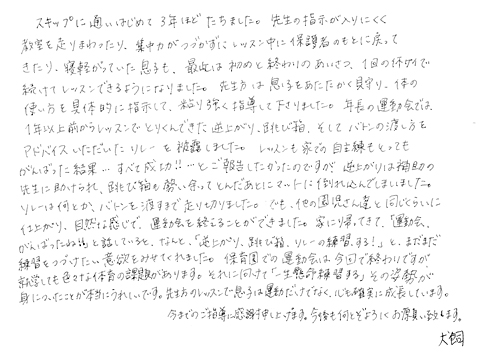 スキップに通いはじめて3年ほどたちました。先生の指示が入りにくく
教室を走りまわったり、集中力がつづかずにレッスン中に保護者のもとに戻って
きたり、寝転がっていた息子も、最近は初めと終わりのあいさつ、1回の休けいで
続けてレッスンできるようになりました。先生方は息子をあたたかく見守り、体の
使い方を具体的に指示して、粘り強く指導して下さりました。年長の運動会では、
1年以上前からレッスンでとりくんできた逆上がり、跳び箱、そしてバトンの渡し方を
アドバイスいただいたリレーを披露しました。レッスンも家での自主練もとっても
がんばった結果…すべて成功!!…とご報告したかったのですが、逆上がりは補助の
先生に助けられ、跳び箱も勢い余ってとんだあとにマットに倒れ込んでしまいました。
リレーは何とか、バトンを渡すまで走り切りました。でも、他の園児さん達と同じくらいに
仕上がり、自然な感じで、運動会を終えることができました。家に帰ってきて、「運動会、
がんばったね」と話していると、なんと、「逆上がり、跳び箱、リレーの練習する!」と、まだまだ
練習をつづけたい意欲をみせてくれました。保育園での運動会は今回で終わりですが
就学しても色々な体育の課題があります。それに向けて「一生懸命練習する」その姿勢が
身についたことが本当にうれしいです。先生方のレッスンで息子は運動だけでなく、心も確実に成長しています。
今までのご指導に感謝申し上げます。今後も何とぞよろしくお願い致します。
犬飼